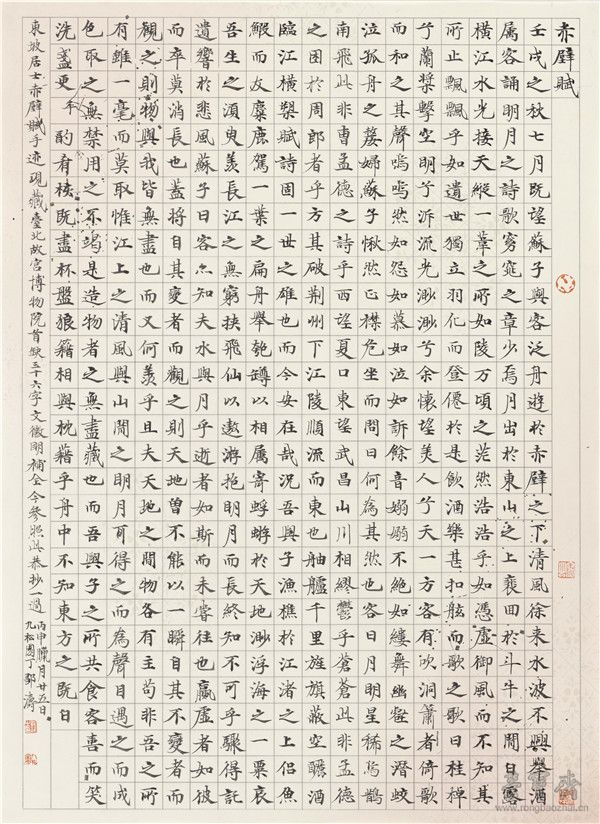 赤壁賦
壬戌之秋七月既望蘇子與客泛舟遊於赤壁之下清風徐来水波不興舉酒
属客誦明月之詩歌窈窕之章少焉月出於東山之上裵回於斗牛之間白露
橫江水光接天縱一葦之所如陵万頃之茫然浩浩乎如憑虛御風而不知其
所止飄飄乎如遺世獨立羽化而登僊於是飲酒樂甚扣舷而歌之歌曰桂棹
兮蘭槳擊空明兮泝流光渺渺兮余懷望美人兮天一方客有吹洞簫者倚歌
而和之其聲嗚嗚然如怨如慕如泣如訴餘音嫋嫋不絶如縷舞幽壑之潛蛟
泣孤舟之嫠婦蘇子愀然正襟危坐而問曰何為其然也客曰月明星稀烏鵲
南飛此非曹孟德之詩乎西望夏口東望武昌山川相繆鬱乎蒼蒼此非孟德
之困於周郎者乎方其破荆州下江陵順流而東也舳艫千里旌旗蔽空釃酒
臨江橫槊賦詩固一世之雄也而今安在哉況吾與子漁樵於江渚之上侶魚
鰕而友麋鹿駕一葉之扁舟舉匏罇以相属寄蜉蝣於天地渺浮海之一粟哀
吾生之須臾羡長江之無窮挾飛仙以遨游抱明月而長終知不可乎驟得託
遺響於悲風蘇子曰客亦知夫水與月乎逝者如斯而未嘗往也贏虛者如彼
而卒莫消長也蓋將自其變者而觀之則天地曾不能以一瞬自其不變者而
觀之則物與我皆無盡也而又何羡乎且夫天地之間物各有主苟非吾之所
有雖一毫而莫取惟江上之清風與山間之明月耳得之而為聲目遇之而成
色取之無禁用之不竭是造物者之無盡藏也而吾與子之所共食客喜而笑
洗盞更平酌有核既盡杯盤狼籍相與枕藉乎舟中不知東方之既白
東坡居士赤壁賦手迹現藏臺北故宮博物院首缺三十六字文徵明補全今參照此恭抄一過
丙申臘月廿五日
九松園丁鄧濤
www.rongbaozhai.cn